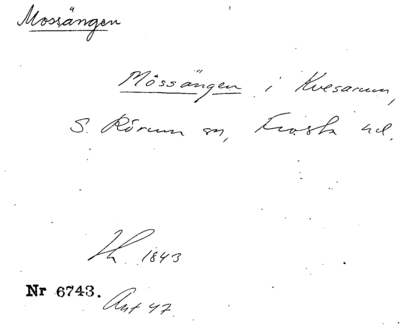 Mossängen
Mossängen i Kvesarum,
S. Rörum sn, Frosta hd.
1843
Nr 6743.
Ant 47